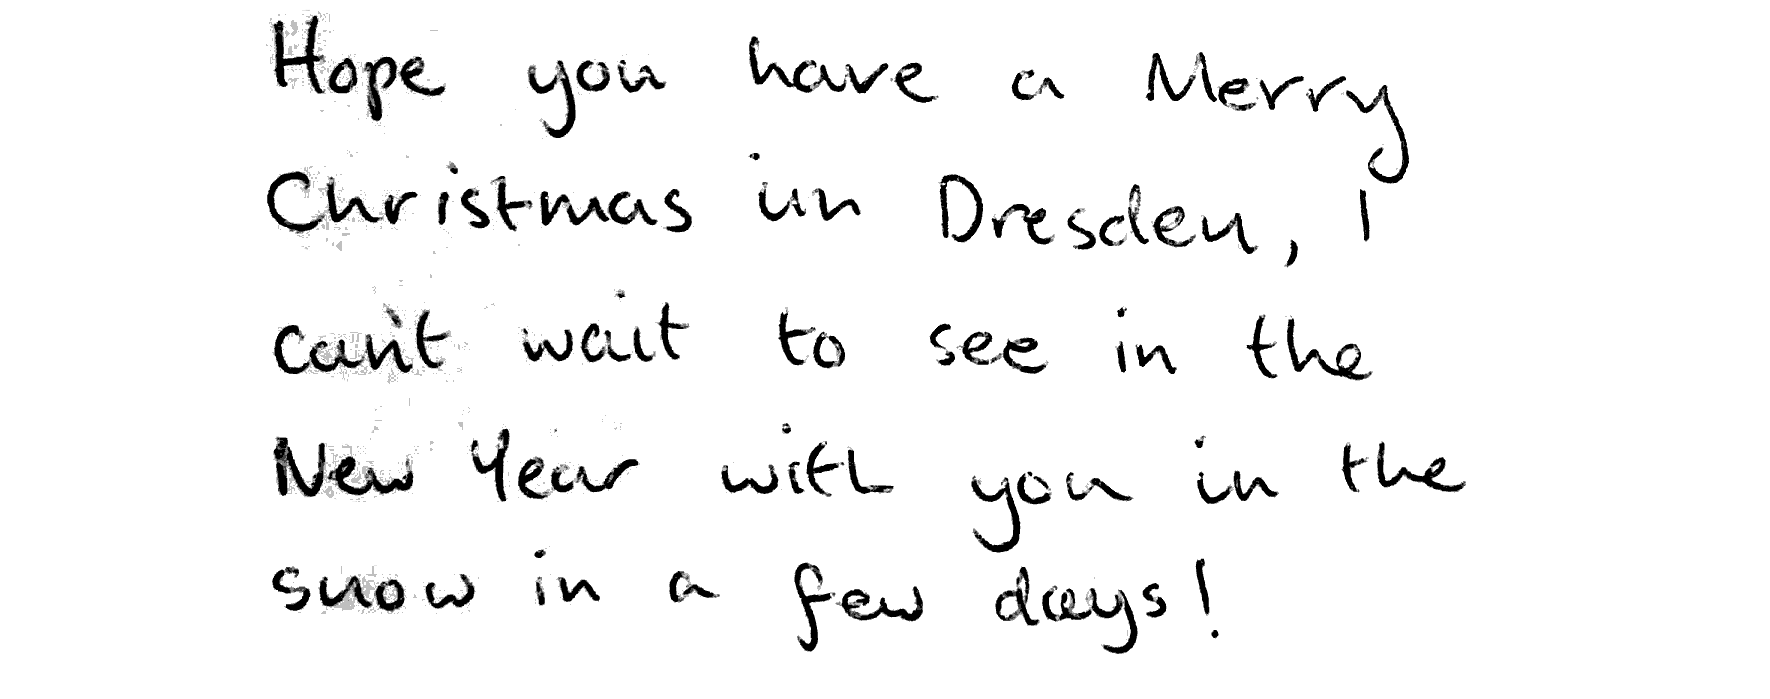 Hope you have a Merry
Christmas in Dresden, I
can't wait to see in the
New Year with you in the
snow in a few days!